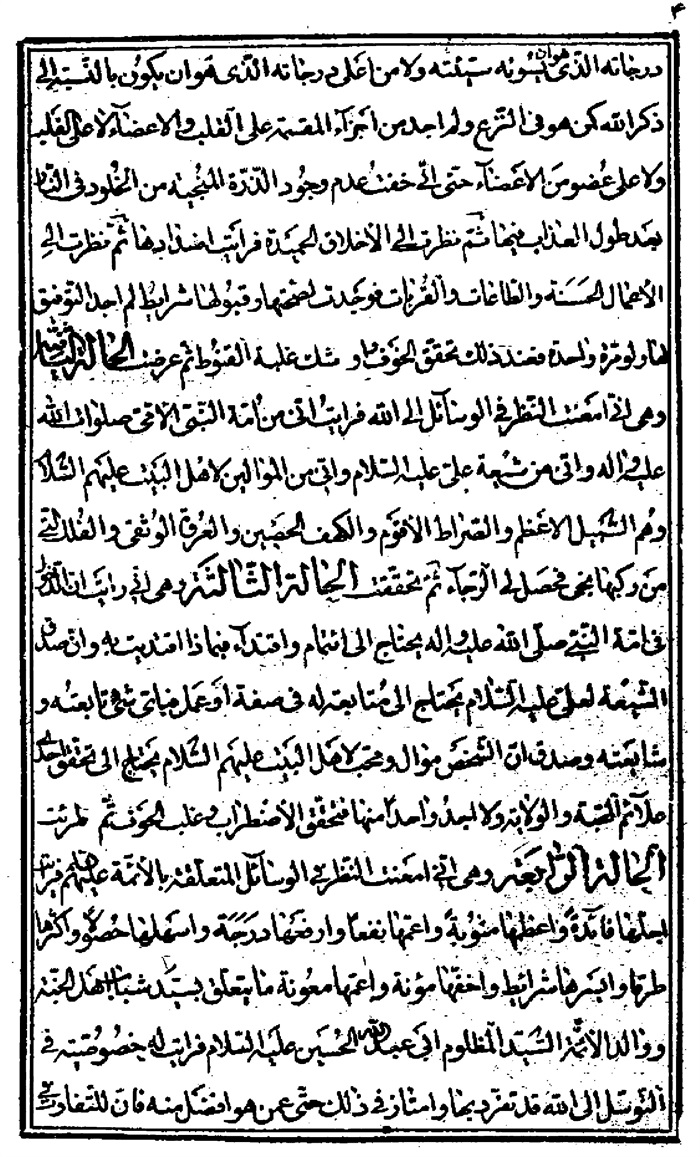 ۴
درجاته الذی هو ان يسوئه سيئته ولا من اعلی درجاته الذی هو ان يكون بالنسبة الی
ذكر الله كمن هو فی النزع ولم اجد من اجزآء المقسمة علی القلب والاعضآء لا علی القلب
ولا علی عضو من الاعضآء حتی انی خفت عدم وجود الذرة المنجية من الخلود فی النار
بعد طول العذاب فيها ثم نظرت الی الأخلاق الحميدة فرايت اضدادها ثم نظرت الی
الأعمال الحسنة والطاعات والقربات فوجدت لصحتها وقبولها شرايط لم اجد التوفيق
لها ولو مرة واحدة فعند ذلك تحقق الخوف و غلبة القنوط ثم عرضت الحالة الثانية
وهی انی امعنت النظر فی الوسآئل الی الله فرايت انی من امّة النبی الأمی صلوات الله
عليه واله وانی من شيعة علی عليه السلام وانی من الموالين لاهل البيت عليهم السلام
وهم السبيل الاعظم والصراط الأقوم والكهف الحصين والعروة الوثقی والفلك التی
من ركبها نجی فحصل لی الرجآء ثم تحققت الحالة الثالثة وهی انی رايت ان الدخول
فی امة النبی صلی الله عليه واله يحتاج الی ائتمام واقتدآء فبماذا اقتديت به وان صدق
الشيعة لعلی عليه السلام يحتاج الی متابعته له فی صفة او عمل فبای شیء تابعته و
شايعته وصدق ان الشخص موال ومحب لاهل البيت عليهم السلام يحتاج الی تحقق احد
علآئم المحبة والولاية ولا اجد واحداً منها فتحقق الأضطراب وغلب الخوف ثم طرئت
الحالة الرابعة وهی انی امعنت النظر فی الوسآئل المتعلقة بالأئمة عليهم فرايت
اجلها فآئدة واعظمها مثوبة واعمها نفعا وارفعها درجة واسهلها حصولا واكثرها
طرقا وايسرها شرايط واخفها مؤنة واعمها معونة ما يتعلق بسيد شباب اهل الجنة
ووالد الأئمة السيد المظلوم ابی عبد الله الحسين عليه السلام فرايت له خصوصية فی
التوسل الی الله قد تفرد بها وامتاز فی ذلك حتی عمن هو افضل منه فان للتفاوت فی